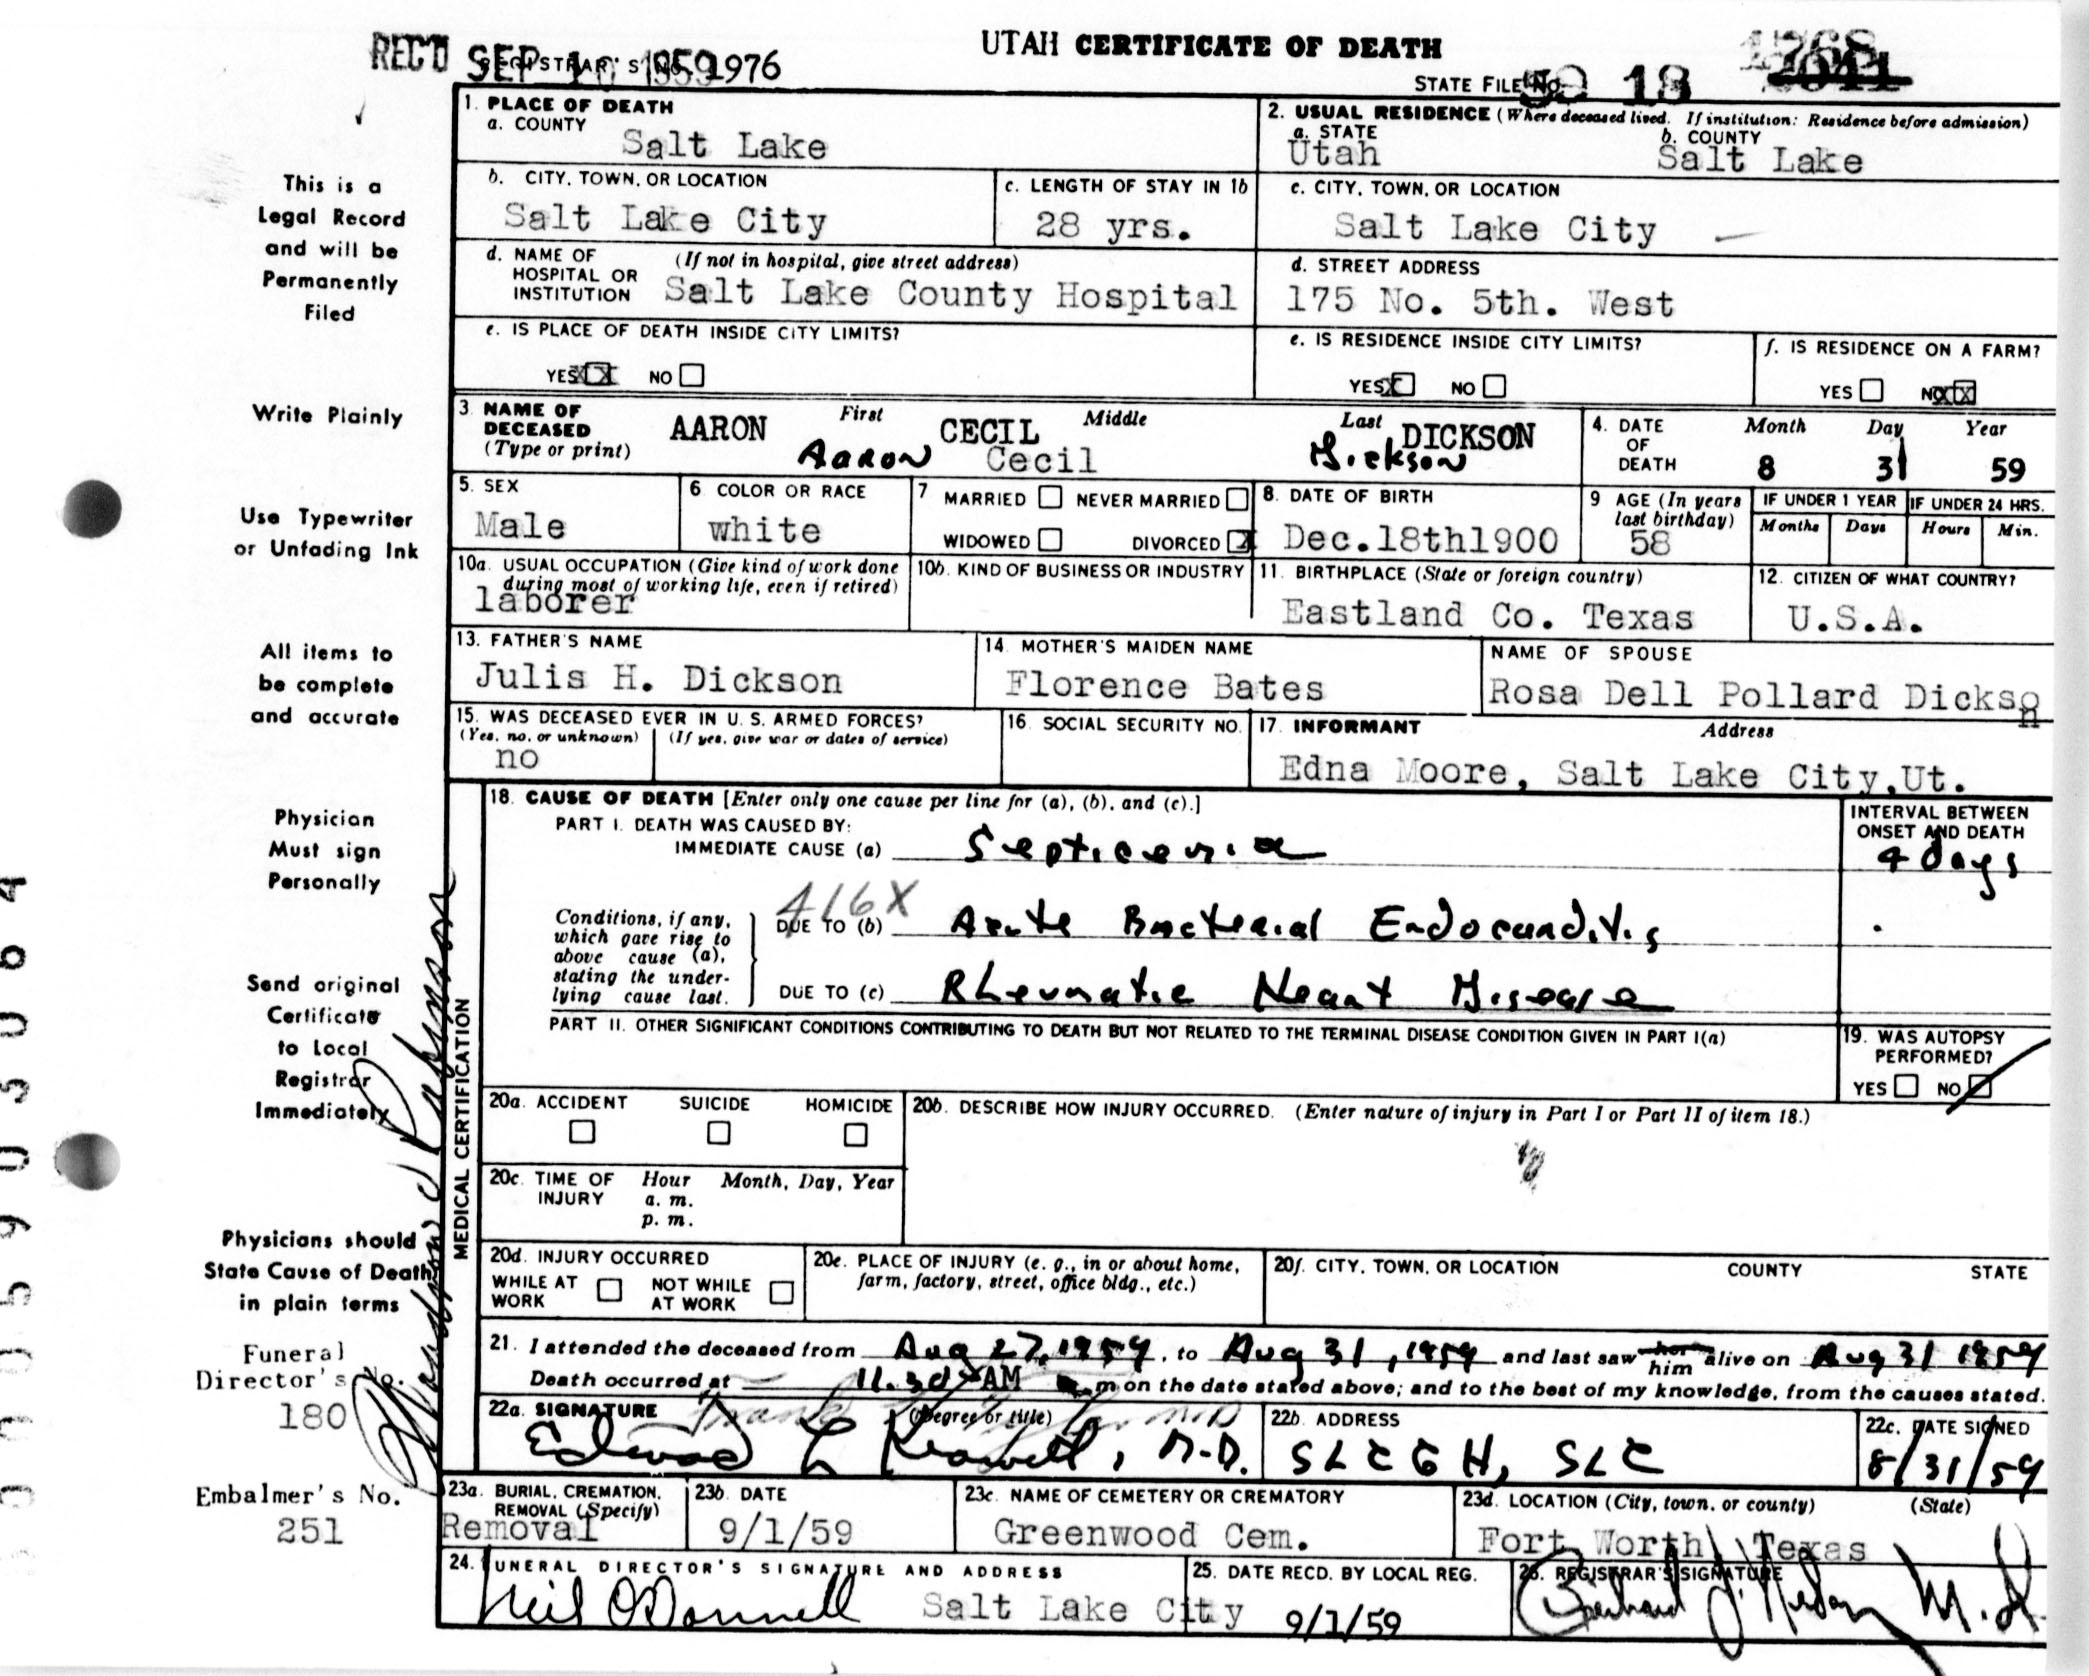 UTAH CERTIFICATE OF DEATH
REC'D SEP 10 1959 REGISTRAR'S NO. 1976
STATE FILE No. 59 18 1768
2041
1. PLACE OF DEATH
a. COUNTY
Salt Lake
2. USUAL RESIDENCE (Where deceased lived. If institution: Residence before admission)
a. STATE b. COUNTY
Utah Salt Lake
b. CITY, TOWN, OR LOCATION
Salt Lake City
c. LENGTH OF STAY IN 1b
28 yrs.
c. CITY, TOWN, OR LOCATION
Salt Lake City
d. NAME OF (If not in hospital, give street address)
HOSPITAL OR
INSTITUTION Salt Lake County Hospital
d. STREET ADDRESS
175 No. 5th. West
e. IS PLACE OF DEATH INSIDE CITY LIMITS?
YES XX NO
e. IS RESIDENCE INSIDE CITY LIMITS?
YES X NO
f. IS RESIDENCE ON A FARM?
YES NO XX
3. NAME OF DECEASED
(Type or print)
First Middle Last
AARON CECIL DICKSON
Aaron Cecil Dickson
4. DATE OF DEATH
Month Day Year
8 31 59
5. SEX
Male
6 COLOR OR RACE
white
7 MARRIED NEVER MARRIED
WIDOWED DIVORCED X
8. DATE OF BIRTH
Dec.18th1900
9 AGE (In years last birthday)
58
IF UNDER 1 YEAR IF UNDER 24 HRS.
Months Days Hours Min.
10a. USUAL OCCUPATION (Give kind of work done
during most of working life, even if retired)
laborer
10b. KIND OF BUSINESS OR INDUSTRY
11. BIRTHPLACE (State or foreign country)
Eastland Co. Texas
12. CITIZEN OF WHAT COUNTRY?
U.S.A.
13. FATHER'S NAME
Julis H. Dickson
14. MOTHER'S MAIDEN NAME
Florence Bates
NAME OF SPOUSE
Rosa Dell Pollard Dickson
15. WAS DECEASED EVER IN U. S. ARMED FORCES?
(Yes, no, or unknown) (If yes, give war or dates of service)
no
16. SOCIAL SECURITY NO.
17. INFORMANT Address
Edna Moore, Salt Lake City,Ut.
MEDICAL CERTIFICATION
18. CAUSE OF DEATH [Enter only one cause per line for (a), (b), and (c).]
PART I. DEATH WAS CAUSED BY:
IMMEDIATE CAUSE (a) Septicemia
INTERVAL BETWEEN
ONSET AND DEATH
4 days
416X
Conditions, if any,
which gave rise to
above cause (a),
stating the under-
lying cause last.
DUE TO (b) Acute Bacterial Endocarditis
DUE TO (c) Rheumatic Heart Disease
PART II. OTHER SIGNIFICANT CONDITIONS CONTRIBUTING TO DEATH BUT NOT RELATED TO THE TERMINAL DISEASE CONDITION GIVEN IN PART I(a)
19. WAS AUTOPSY
PERFORMED?
YES NO
20a. ACCIDENT SUICIDE HOMICIDE
20b. DESCRIBE HOW INJURY OCCURRED. (Enter nature of injury in Part I or Part II of item 18.)
20c. TIME OF INJURY
Hour Month, Day, Year
a. m.
p. m.
20d. INJURY OCCURRED
WHILE AT WORK NOT WHILE AT WORK
20e. PLACE OF INJURY (e. g., in or about home,
farm, factory, street, office bldg., etc.)
20f. CITY, TOWN, OR LOCATION COUNTY STATE
21. I attended the deceased from Aug 27, 1959, to Aug 31, 1959 and last saw her him alive on Aug 31 1959
Death occurred at 11.30 AM m on the date stated above; and to the best of my knowledge, from the causes stated.
22a. SIGNATURE (Degree or title)
M.D.
22b. ADDRESS
SLCGH, SLC
22c. DATE SIGNED
8/31/59
23a. BURIAL, CREMATION,
REMOVAL (Specify)
Removal
23b. DATE
9/1/59
23c. NAME OF CEMETERY OR CREMATORY
Greenwood Cem.
23d. LOCATION (City, town, or county) (State)
Fort Worth, Texas
24. FUNERAL DIRECTOR'S SIGNATURE AND ADDRESS
Neil O'Donnell Salt Lake City
25. DATE RECD. BY LOCAL REG.
9/1/59
26. REGISTRAR'S SIGNATURE
This is a
Legal Record
and will be
Permanently
Filed
Write Plainly
Use Typewriter
or Unfading Ink
All items to
be complete
and accurate
Physician
Must sign
Personally
Send original
Certificate
to Local
Registrar
Immediately
Physicians should
State Cause of Death
in plain terms
Funeral
Director's No.
180
Embalmer's No.
251